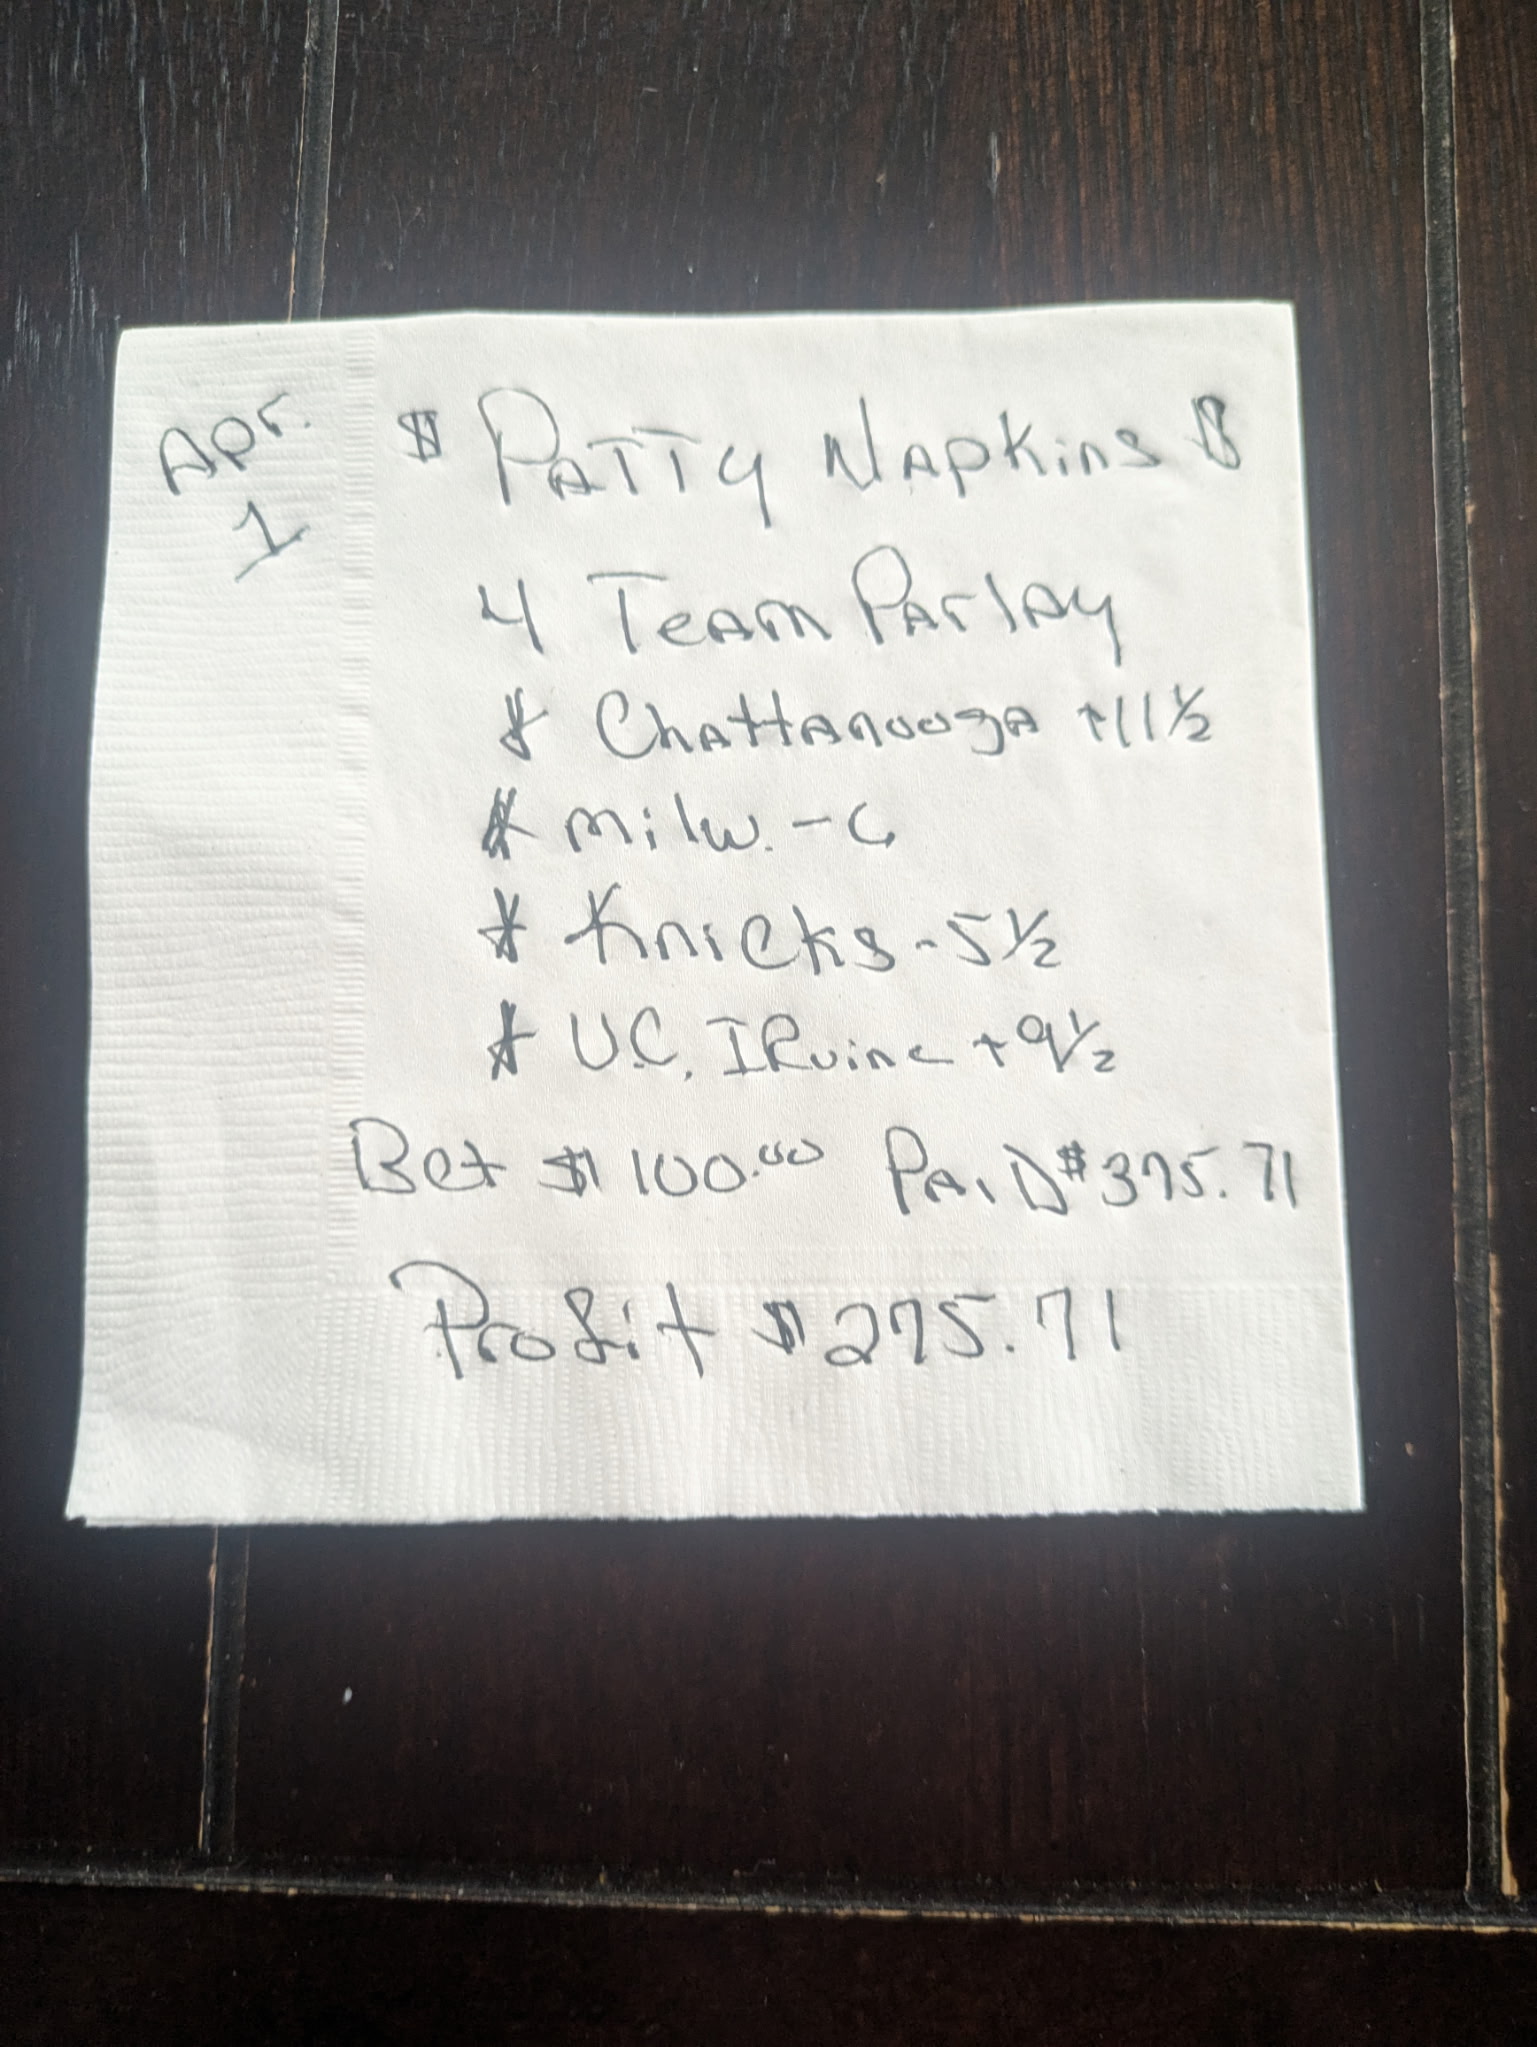 Apr.
1
$ Patty Napkins $
4 Team Parlay
* Chattanooga +11½
* Milw. -6
* Knicks -5½
* U.C. Irvine +9½
Bet $100.00 Paid $375.71
Profit $275.71